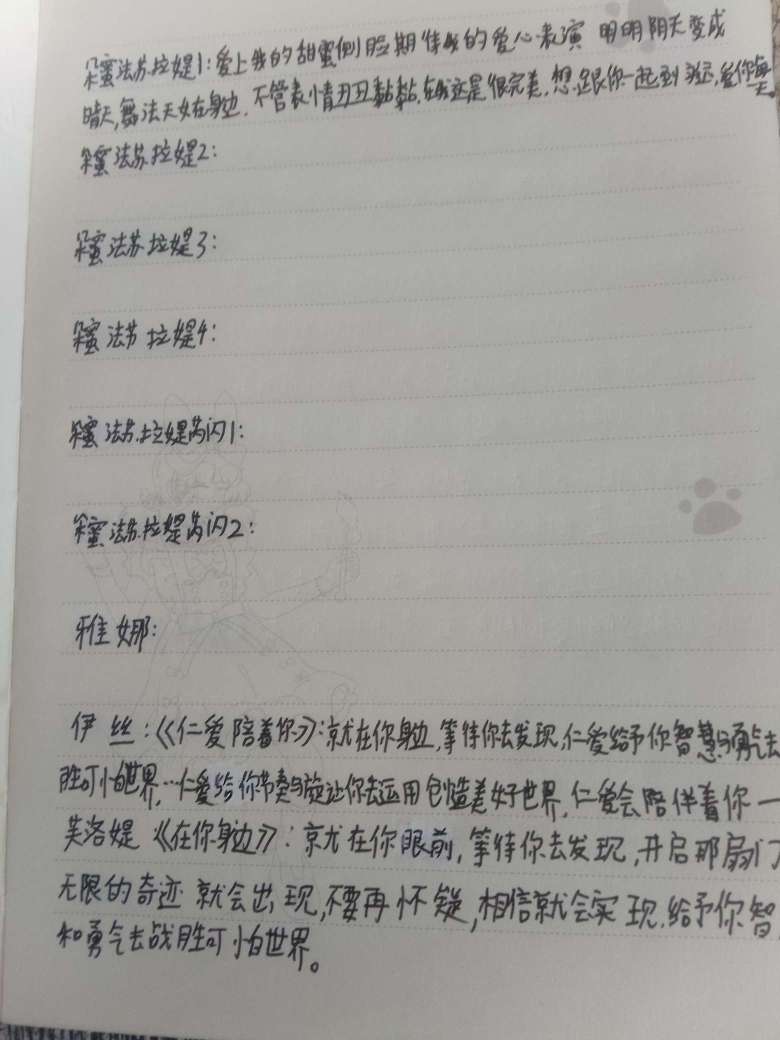 朵蜜法苏拉媞1:爱上我的甜蜜侧脸期待我的爱心表演 明明阴天变成
晴天,舞法天女在身边.不管表情丑丑黏黏,在我这是很完美,想跟你一起到永远,爱你每天
朵蜜法苏拉媞2:
朵蜜法苏拉媞3:
朵蜜法苏拉媞4:
朵蜜法苏拉媞芮闪1:
朵蜜法苏拉媞芮闪2:
雅娜:
伊丝:《仁爱陪着你》:就在你身边,等待你去发现,仁爱给予你智慧与勇气去
胜可怕世界,…仁爱给你节奏与旋让你去运用创造美好世界,仁爱会陪伴着你一
芙洛媞《在你身边》:就在你眼前,等待你去发现,开启那扇门
无限的奇迹就会出现,不要再怀疑,相信就会实现.给予你智
和勇气去战胜可怕世界。